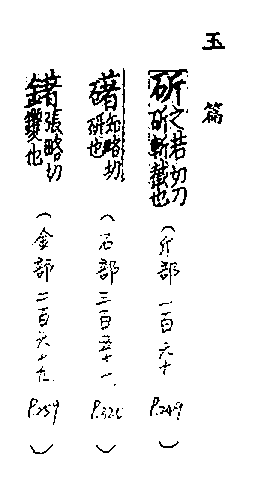 玉篇
斫之若切刀斫斬藂也
（斤部一百六十 P.249）
䃴知略切斫也
（石部三百五十一、P.326）
鐯張略切钁也
（金部二百六十九 P.259）